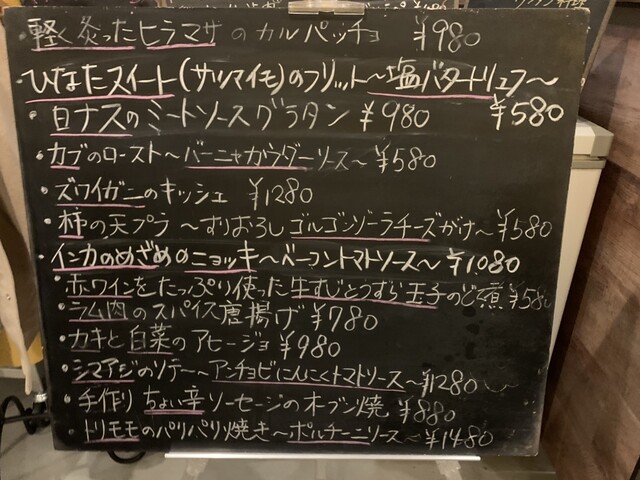 軽く炙ったヒラマサのカルパッチョ ¥980
ひなたスイート(サツマイモ)のフリット～塩バタートリュフ～ ¥580
・白ナスのミートソースグラタン ¥980
・カブのロースト～バーニャカウダーソース～¥580
・ズワイガニのキッシュ ¥1280
・柿の天プラ～すりおろしゴルゴンゾーラチーズがけ～¥580
・インカのめざめのニョッキ～ベーコントマトソース～¥1080
・赤ワインをたっぷり使った牛すじとうずら玉子のど煮¥580
・ラム肉のスパイス唐揚げ¥780
・カキと白菜のアヒージョ¥980
・シマアジのソテー～アンチョビにんにくトマトソース～¥1280
・手作りちょい辛ソーセージのオーブン焼 ¥880
・トリモモのパリパリ焼き～ポルチーニソース～¥1480